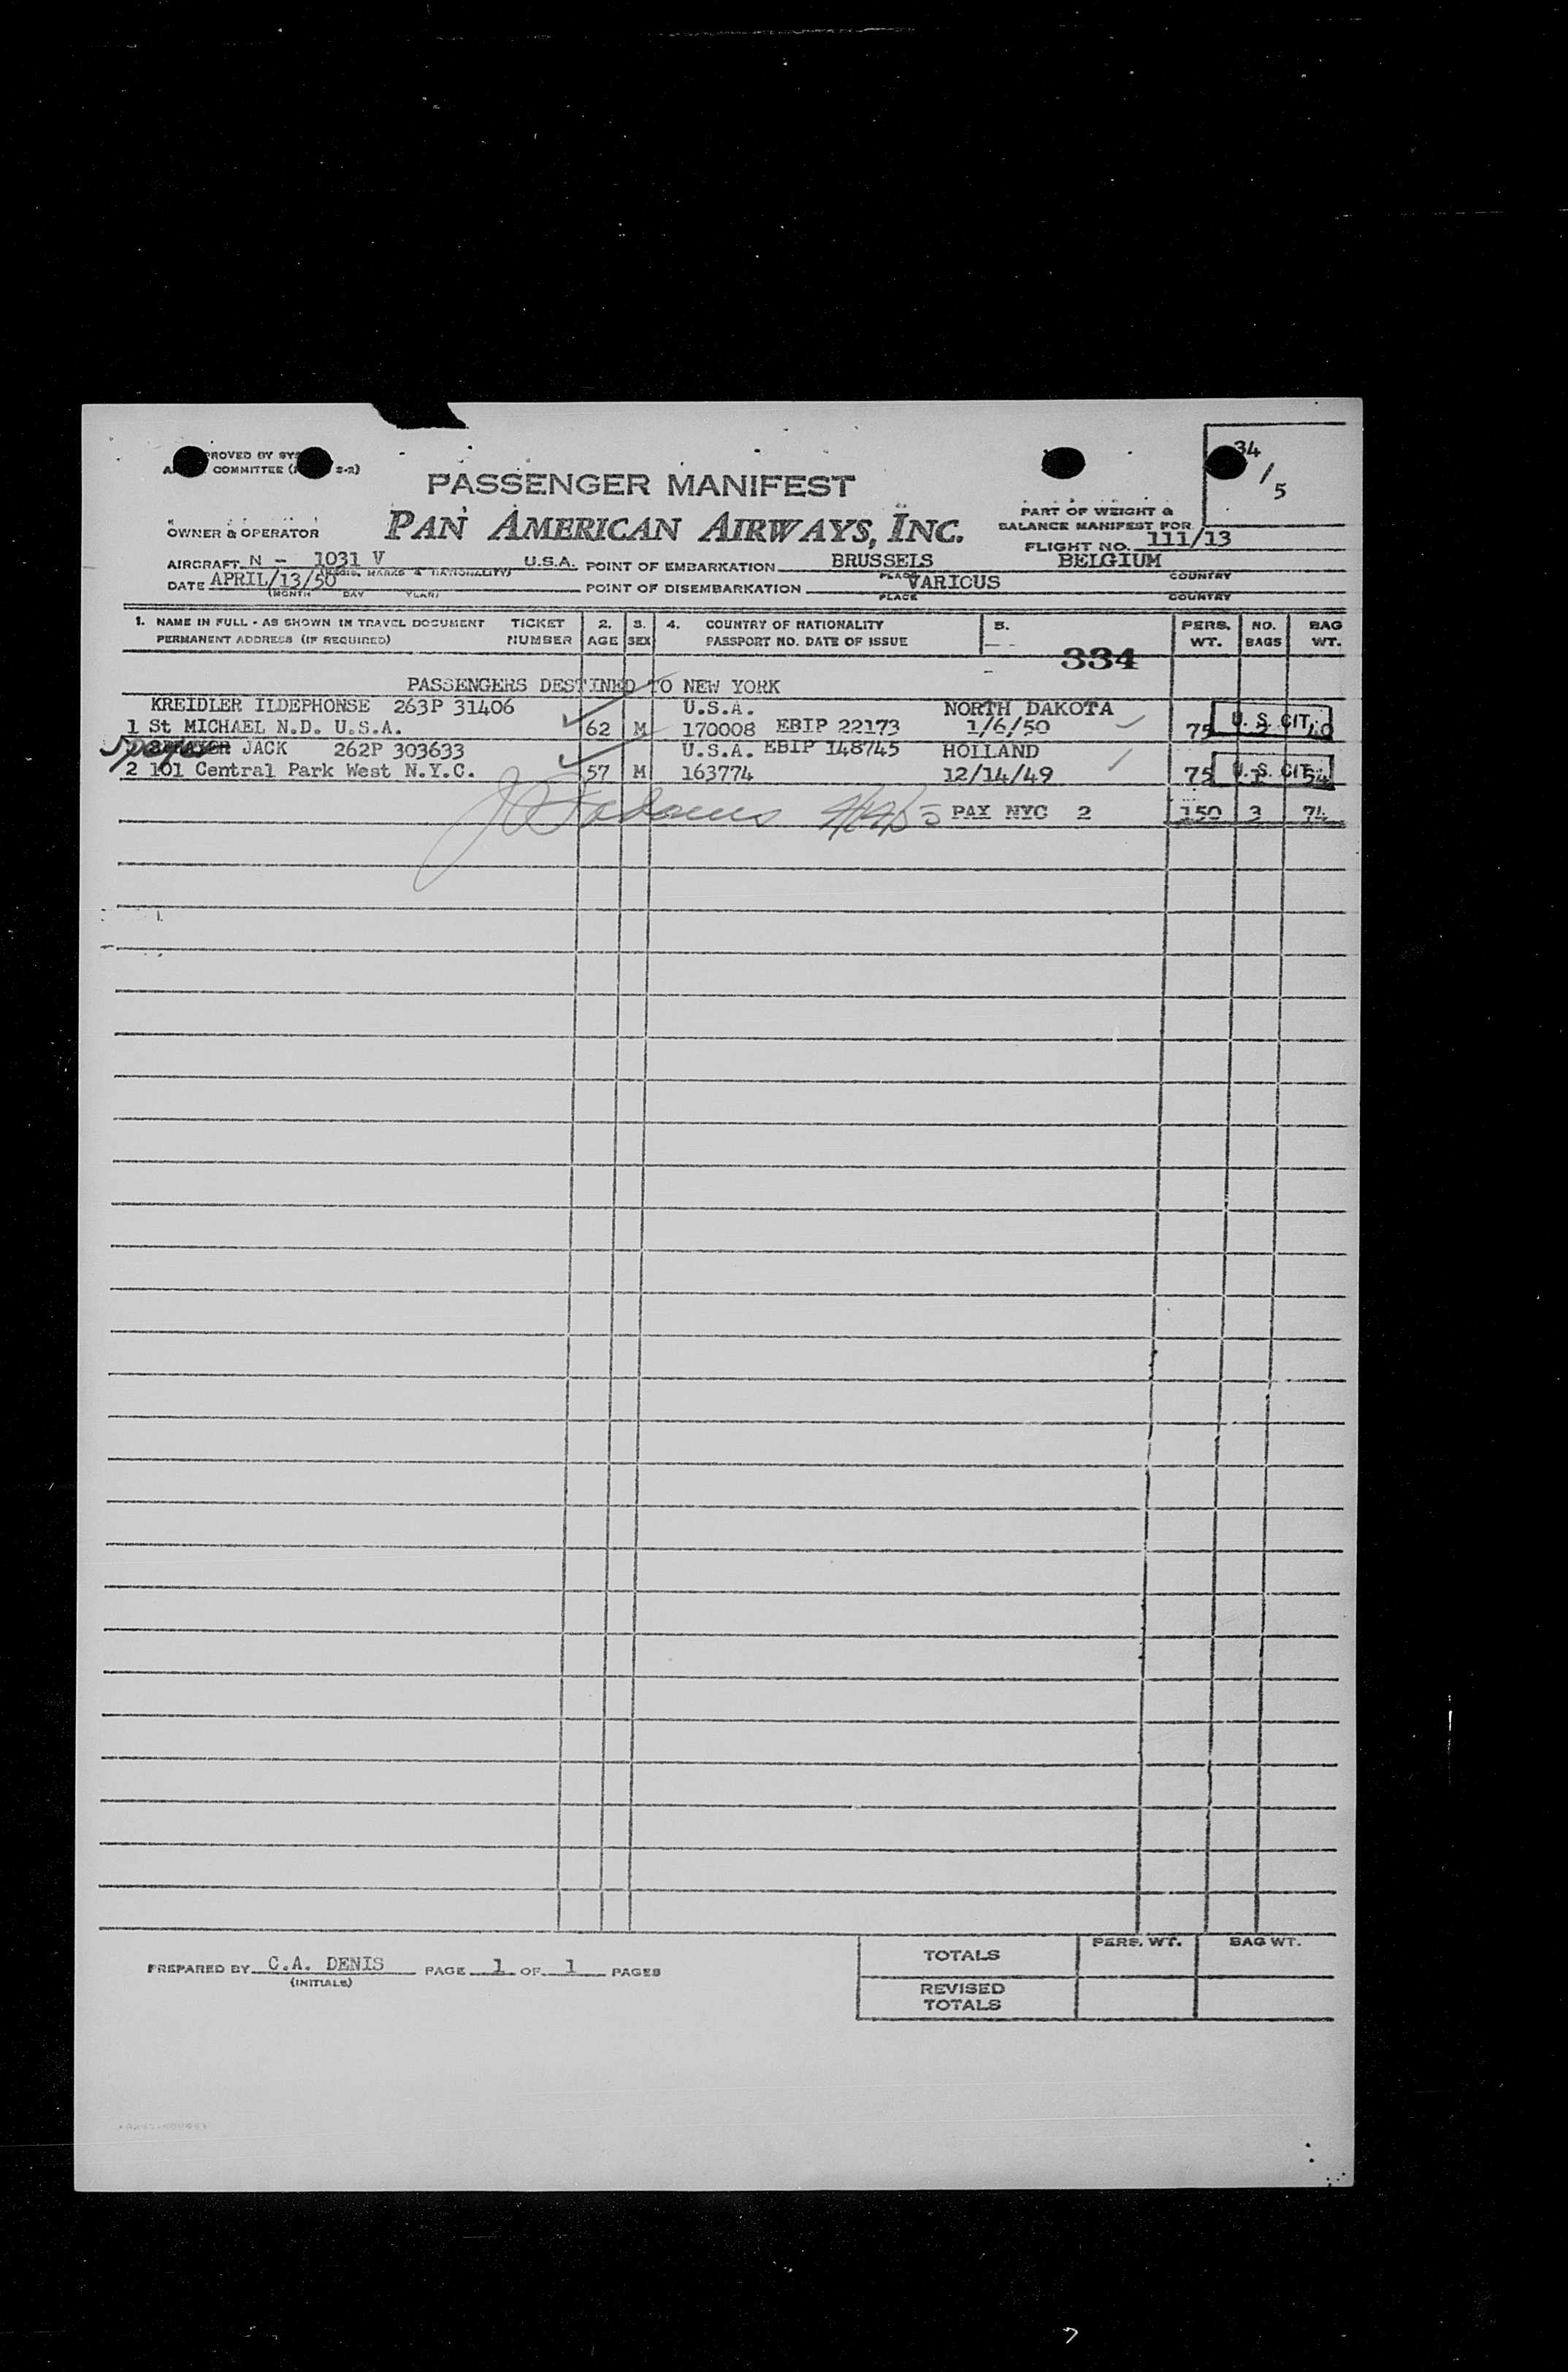 34
/
5
PROVED BY SYS
COMMITTEE (
S-2)
PASSENGER MANIFEST
PAN AMERICAN AIRWAYS, INC.
OWNER & OPERATOR
PART OF WEIGHT &
BALANCE MANIFEST FOR
FLIGHT NO. 111/13
AIRCRAFT N - 1031 V U.S.A. POINT OF EMBARKATION BRUSSELS BELGIUM
(REGIS. MARKS & NATIONALITY) PLACE COUNTRY
DATE APRIL/13/50 POINT OF DISEMBARKATION VARICUS
(MONTH DAY YEAR) PLACE COUNTRY
1. NAME IN FULL - AS SHOWN IN TRAVEL DOCUMENT TICKET 2. 3. 4. COUNTRY OF NATIONALITY 5. PERS. NO. BAG
PERMANENT ADDRESS (IF REQUIRED) NUMBER AGE SEX PASSPORT NO. DATE OF ISSUE WT. BAGS WT.
334
PASSENGERS DESTINED TO NEW YORK
KREIDLER ILDEPHONSE 263P 31406 U.S.A. NORTH DAKOTA
1 St MICHAEL N.D. U.S.A. 62 M 170008 EBIP 22173 1/6/50 75 U. S. CIT. 40
JACK 262P 303633 U.S.A. EBIP 148745 HOLLAND
2 101 Central Park West N.Y.C. 57 M 163774 12/14/49 75 U. S. CIT.
PAX NYC 2 150 3 74
PREPARED BY C.A. DENIS PAGE 1 OF 1 PAGES
(INITIALS)
PERS. WT. BAG WT.
TOTALS
REVISED
TOTALS
7